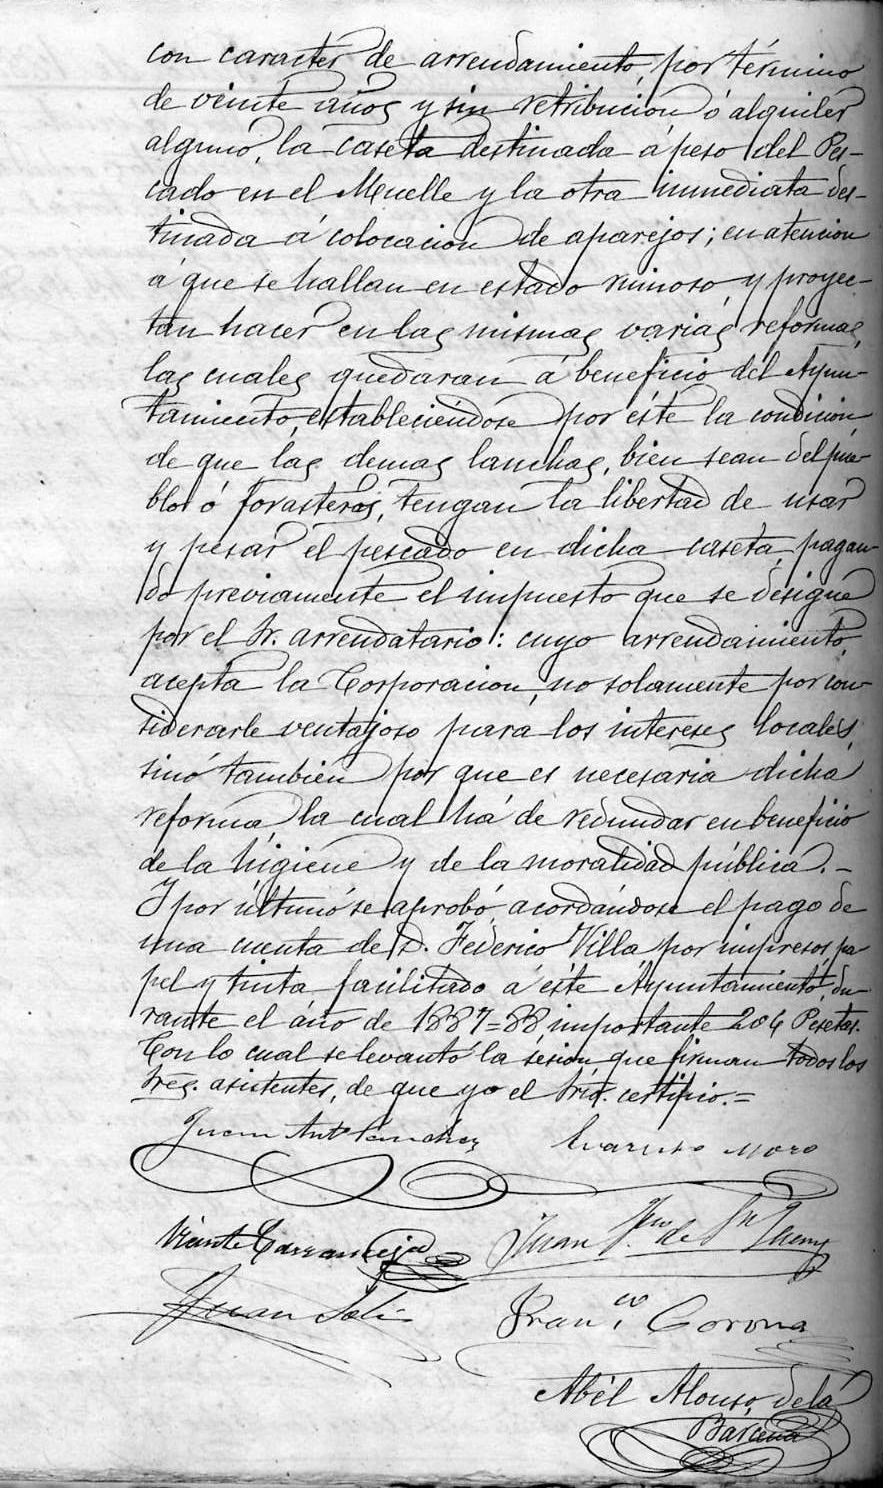 con caracter de arrendamiento, por término
de veinte años y sin retribucion ó alquiler
alguno, la caseta destinada á peso del Pes-
cado en el Muelle y la otra inmediata des-
tinada á colocacion de aparejos; en atencion
á que se hallan en estado ruinoso, y proyec-
tan hacer en las mismas varias reformas,
las cuales quedaran á beneficio del Ayun-
tamiento, estableciéndose por éste la condicion,
de que las demas lanchas, bien sean del pue-
blo ó forasteras, tengan la libertad de usar
y pesar el pescado en dicha caseta, pagan-
do previamente el impuesto que se designe
por el Sr. arrendatario: cuyo arrendamiento,
acepta la Corporacion, no solamente por con-
siderarle ventajoso para los intereses locales,
sinó tambien por que es necesaria dicha
reforma, la cual há de redundar en beneficio
de la higiene y de la moralidad pública. -
Y por último se aprobó, acordándose el pago de
una cuenta de D. Federico Villa por impresos, pa-
pel y tinta facilitado á éste Ayuntamiento, du-
rante el año de 1887=88, importante 206 Pesetas.
Con lo cual se levantó la sesion, que firman todos los
Sres. asistentes, de que yo el Srio. certifico.=
Juan Ant Sanchez Evaristo Moro
Vicente Carranceja Juan de
Juan Solis Fran.co Corona
Abél Alonso de la
Bárcena